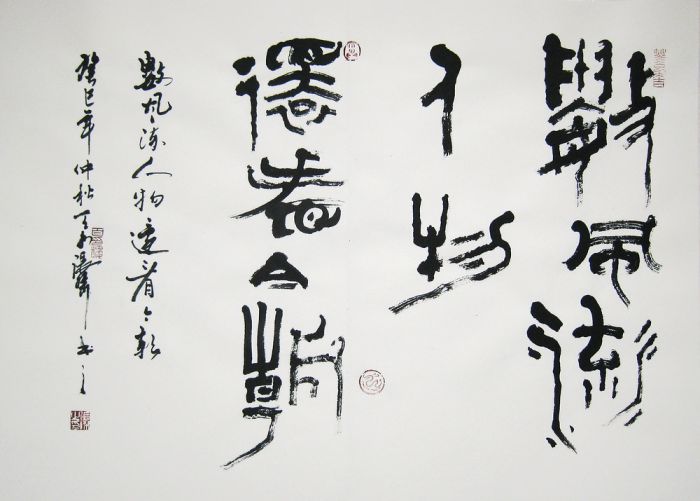 數風流
人物
還看今朝
數風流人物還看今朝
癸巳年仲秋